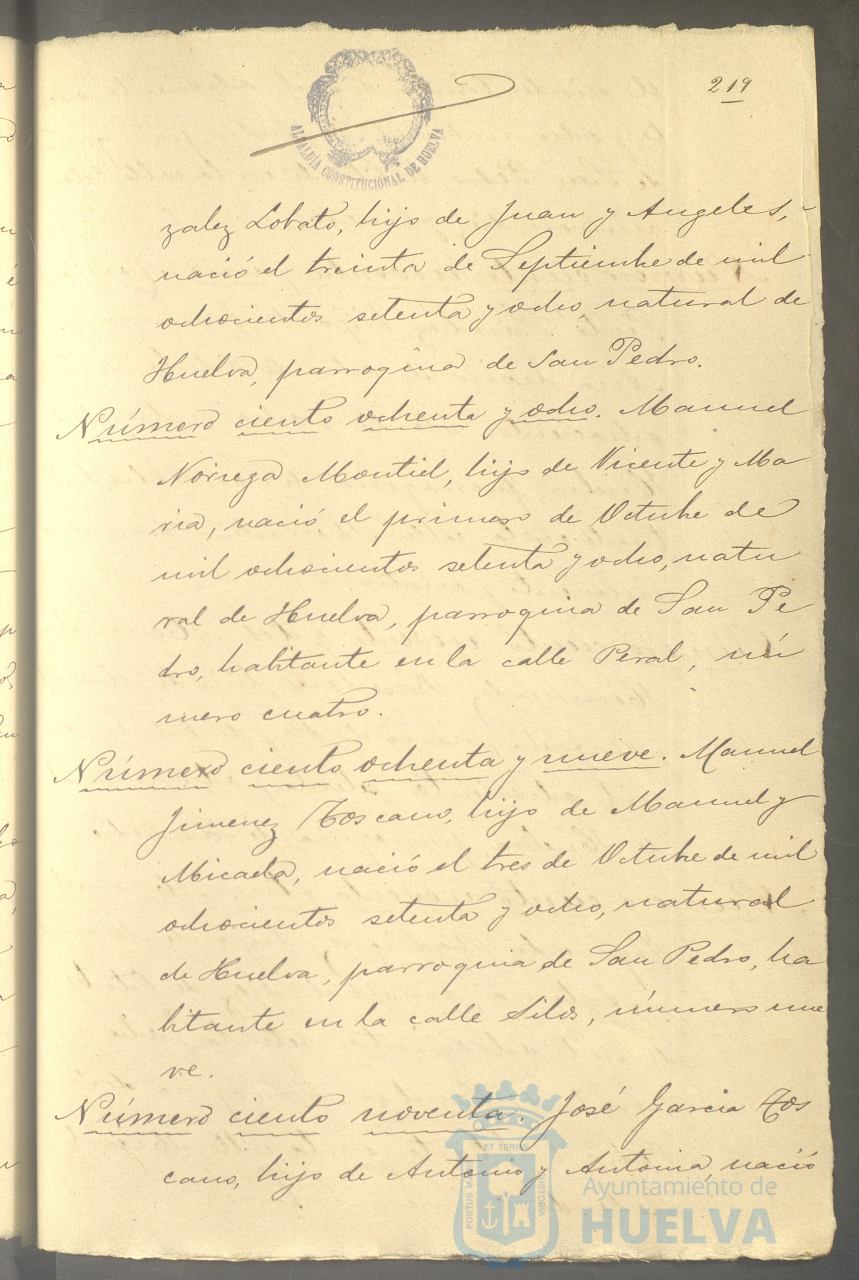 219
ALCALDÍA CONSTITUCIONAL DE HUELVA
zalez Lobato, hijo de Juan y Angeles,
nació el treinta de Septiembre de mil
ochocientos setenta y ocho, natural de
Huelva, parroquia de San Pedro.
Número ciento ochenta y ocho. Manuel
Noriega Montiel, hijo de Vicente y Ma
ria, nació el primero de Octubre de
mil ochocientos setenta y ocho, natu
ral de Huelva, parroquia de San Pe
dro, habitante en la calle Peral, nú
mero cuatro.
Número ciento ochenta y nueve. Manuel
Jimenez Toscano, hijo de Manuel y
Micaela, nació el tres de Octubre de mil
ochocientos setenta y ocho, natural
de Huelva, parroquia de San Pedro, ha
bitante en la calle Silos, número nue
ve.
Número ciento noventa. José Garcia Tos
cano, hijo de Antonio y Antonia, nació
PORTUS MARIS ET TERRAE CUSTODIA
Ayuntamiento de
HUELVA